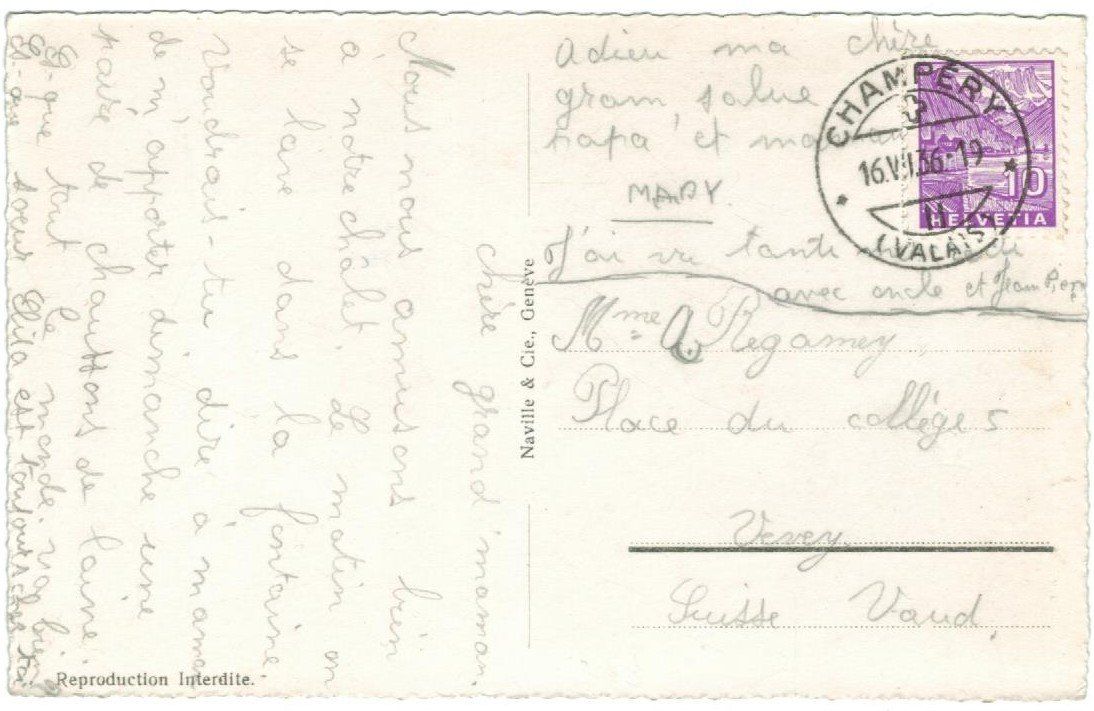 chère grand'maman.
Nous nous amusons bien
à nôtre châlet. Le matin on
se lave dans la fontaine
Voudrais-tu dire à maman
de m'apporter dimanche une
paire de chauffons de laine.
Es-que tout le monde va bien
Es-que soeur Elisa est toujours chez toi.
Adieu ma chère
gram salue
papa et maman
MARY
J'ai vu tante
avec oncle et Jean Pierre
Mme A. Regamey
Place du collége 5
Vevey
Suisse Vaud.
CHAMPÉRY
16.VII.36-19
(VALAIS)
10
HELVETIA
Naville & Cie., Genève
Reproduction Interdite.